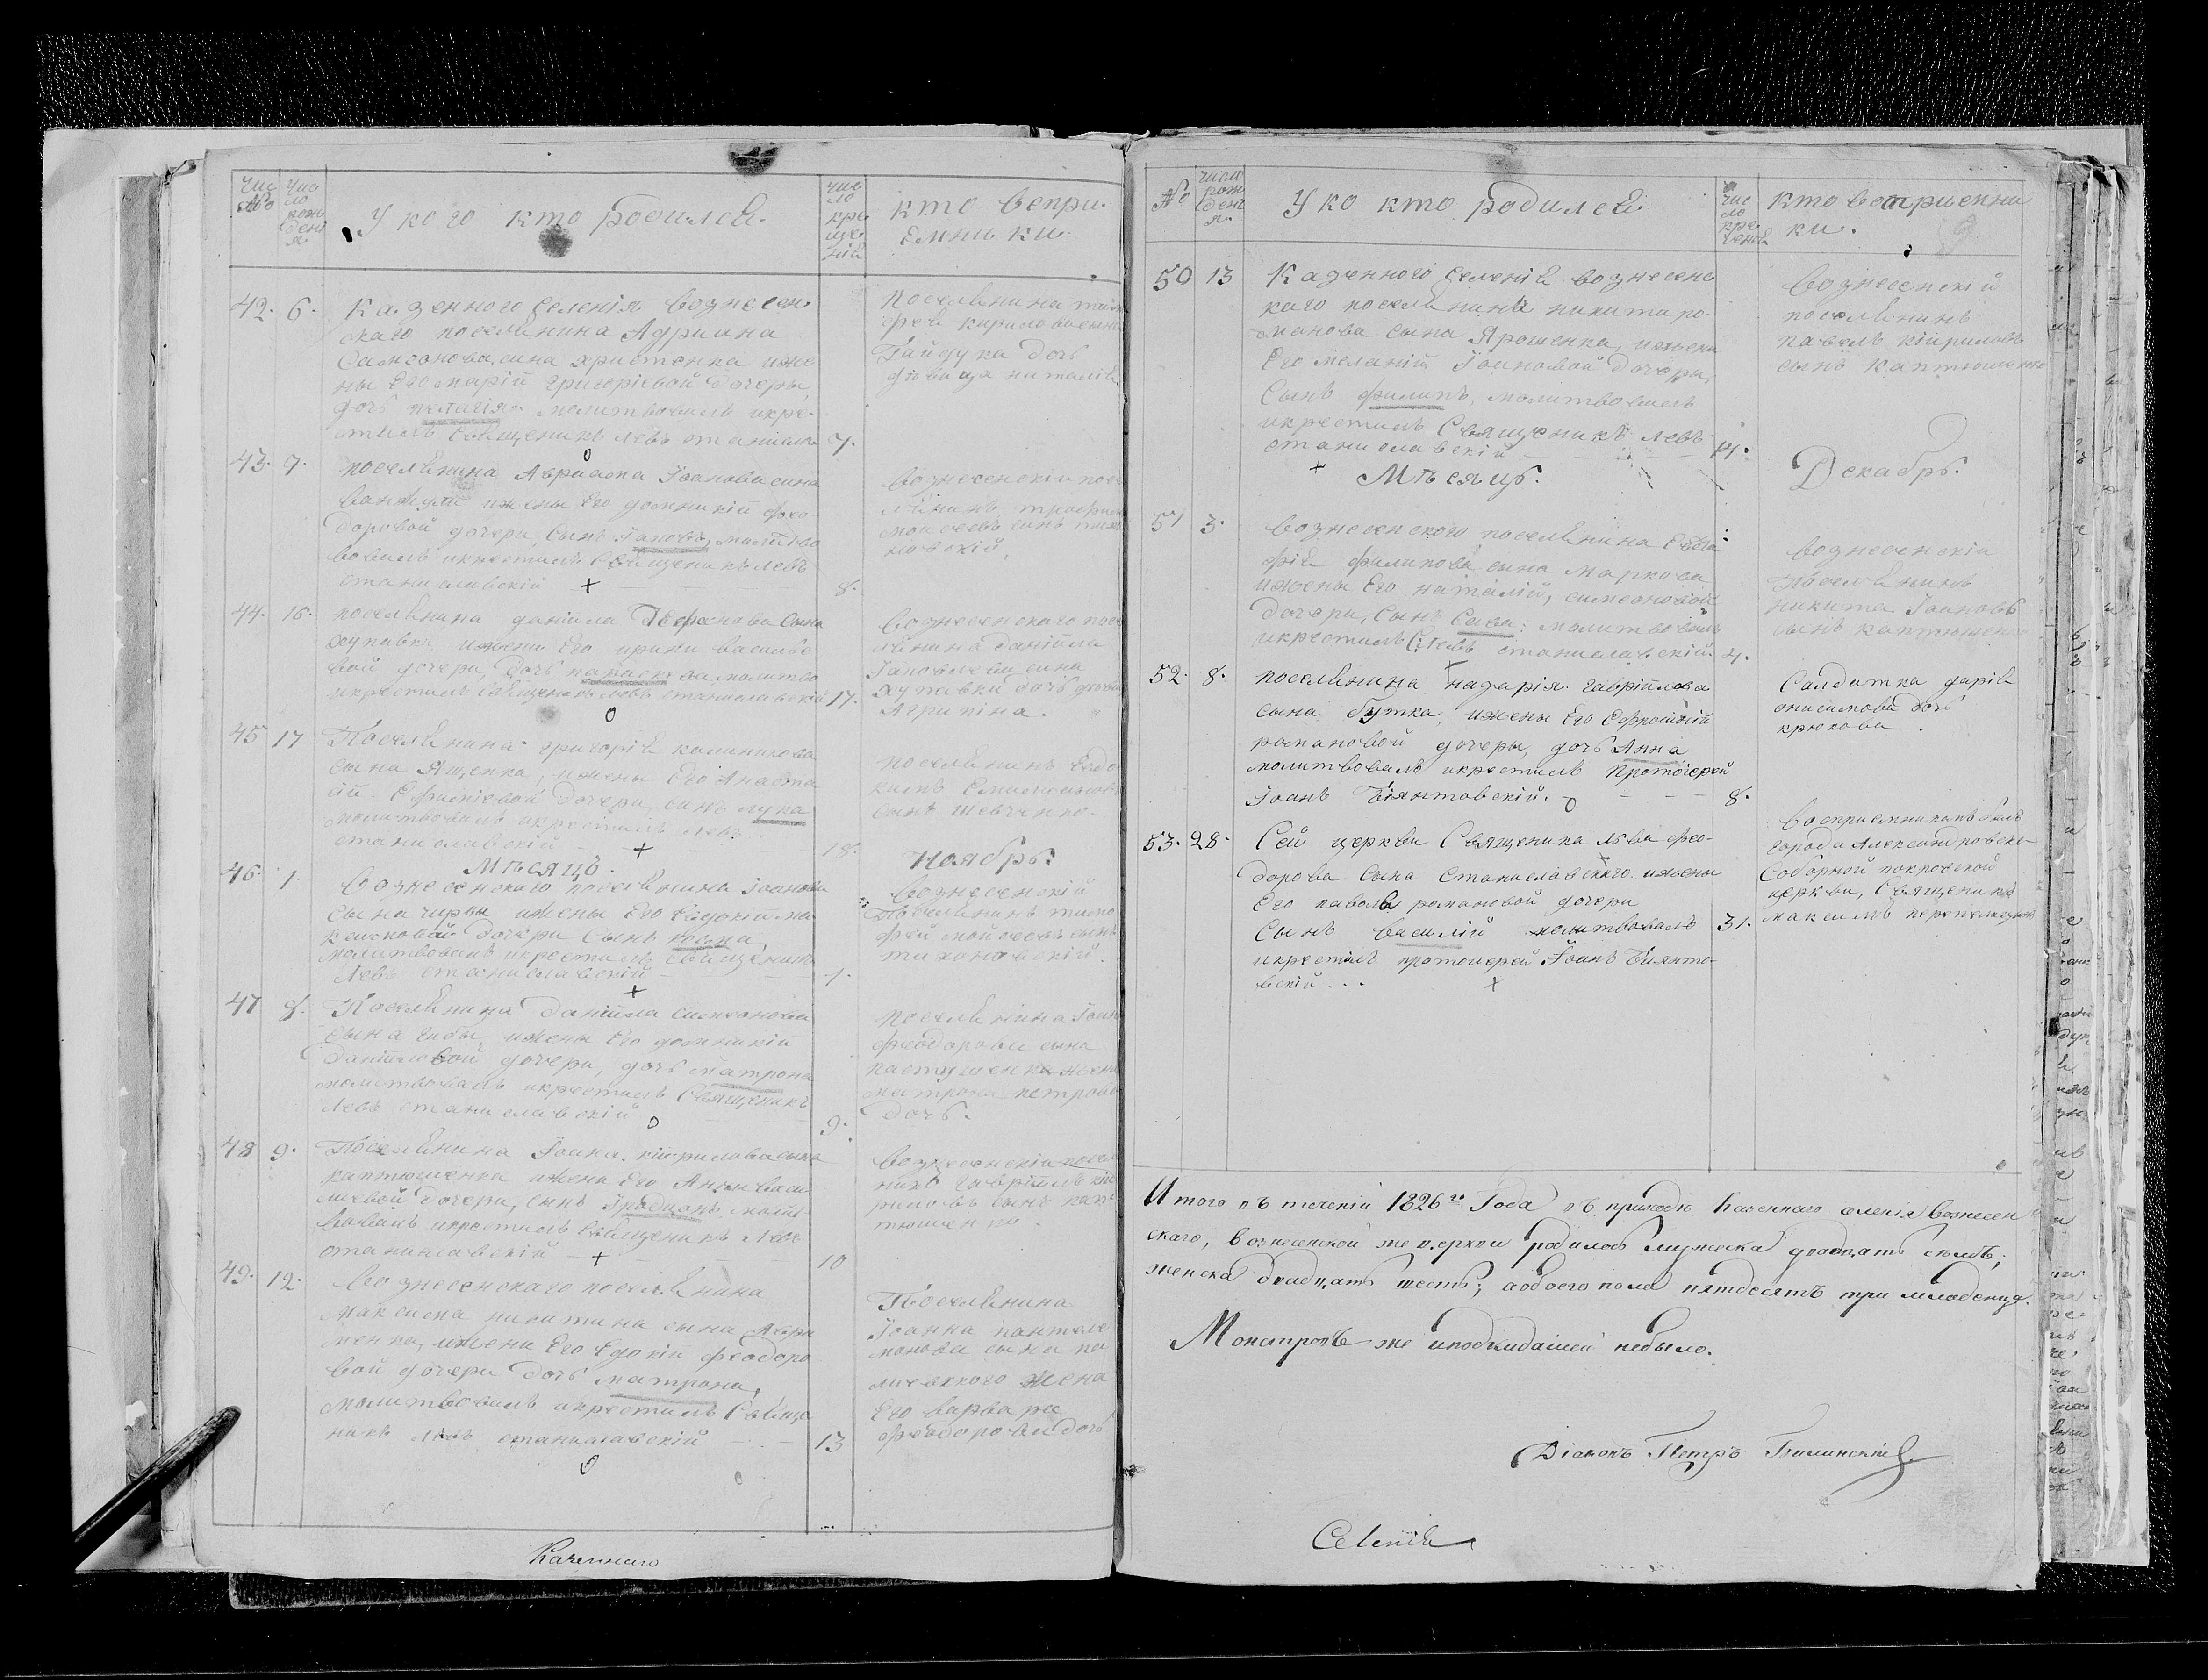 Чис
№
Чис
ло
рож
дені
я.
У кого кто родился.
чис
ло
кре
ще
нія
кто воспри
емники
42. 6. Казенного Селенія Вознесен
скаго поселянина Адриана
Самсонова сина христенка и же
ны Его маріи григоріевой дочеры,
дочь пелагія молитвовалъ и кре
стилъ Священикъ левъ станисла 7.
поселянина
Кирилова сына
Гайдука дочь
дѣвица наталія
43. 7. поселянина Іоанова сина
жены Его домникіи фео
доровой дочери, сынъ Іаковъ, молитво
вовалъ и крестилъ Священикъ левъ
станиславскій 8.
Вознесенскій посе
лянинъ трофим
моисеевъ синъ тихо
новскій.
44. 16. поселянина даніила Стефанова сына
хупавки и жени Его ирини василье
вой дочери, дочь параскева молитво
и крестилъ Священикъ левъ станиславский 17.
Вознесенскаго посе
лянина даніила
Іаковлева сина
хупавки дочь
Агрипина.
45 17 Поселянина григорія калиникова
сына Ященка, и жены Его Анаста
сіи Ефиміевой дочери, сынъ лука
молитвовалъ и крестилъ левъ
станиславскій 18.
поселянинъ Евдо
кимъ
сынъ шевченко.
Мѣсяцъ. Ноябрь.
46. 1. Вознесенскаго поселянина Іоанова
сына чирвы и жены Его Евдокіи ма
ксимовой дочери сынъ
молитвовалъ и крестилъ Священикъ
левъ станиславскій 1.
Вознесенскій
Поселянинъ тимо
фей мойсеевъ сынъ
тихоновскій.
47 8. Поселянина Даніила симеонова
сына и жены Его домникіи
Даніиловой дочери, дочь матрона
молитвовалъ и крестилъ Священикъ
левъ станиславскій 9.
поселянина Іоан
феодорова сына
пастушенка жена
матрона петрова
дочь.
48 9. Поселянина Іоана кіирилова сына
каптюшенка и жены Его Анни Васи
лиевой дочери, сынъ молит
вовалъ и крестилъ Священикъ левъ
станиславскій 10
Вознесенскій посел
нинъ Гавріилъ кіи
риловъ сынъ кап
тюшенко.
49. 12. Вознесенскаго поселянина
максима никитина сына
и жени Его Едокіи феодоро
вой дочери дочь матрона,
молитвовалъ и крестилъ Священ
никъ левъ станиславскій 13
Поселянина
Іоанна пантеле
монова сына
жена
Его варвара
феодорова дочь
Казенного
№ числ
рож
дені
я.
У ко кто родился.
Чис
ло
кре
щенія
кто восприемни
ки.
50 13 Казенного Селенія вознесен
каго поселянина никити ро
манова сына Ярошенка, и жени
Его меланіи Іоановой дочери,
Сынъ филипъ, молитвовалъ
и крестилъ Священикъ левъ
станиславскій 14.
Вознесенскій
поселянинъ
павелъ кіириловъ
сынъ каптюшенко
Мѣсяцъ. Декабрь.
51 3. Вознесенского поселянина
филипова сына маркова
и жены Его наталіи, симеоновой
дочери, сынъ Сава: молитвовалъ
и крестилъ С: левъ станиславскій. 4.
Вознесенскій
поселянинъ
никита Іоановъ
сынъ каптюшенко
52. 8. поселянина назарія гавріилова
сына Гутка, и жены Его Ефросиніи
романовой дочеры, дочь Анна
молитвовалъ и крестилъ Протоіерей
Іоанъ Біянтовскій. 8.
Салдатка дарія
онисимова дочь
крюкова.
53. 28. Сей церкви Священика льва фео
дорова Сына Станиславскаго и жены
Его павлы романовой дочери
Сынъ василій молитвовалъ 31.
и крестилъ протоиерей Іоанъ Біянто
вскій...
Восприемникомъ былъ
города Александровска
Соборной покровской
церкви, Священикъ
максимъ
Итого въ теченіи 1826го Года въ приходѣ Казеннаго селенія вознесен
скаго, вознесенской же церкви родилось мужеска двадцать семъ;
женска двадцать шесть; а обоего пола пятдесятъ три младенца.
Монстровъ же и подкидышей небыло.
Діаконъ Петръ Билинскій
Селенія